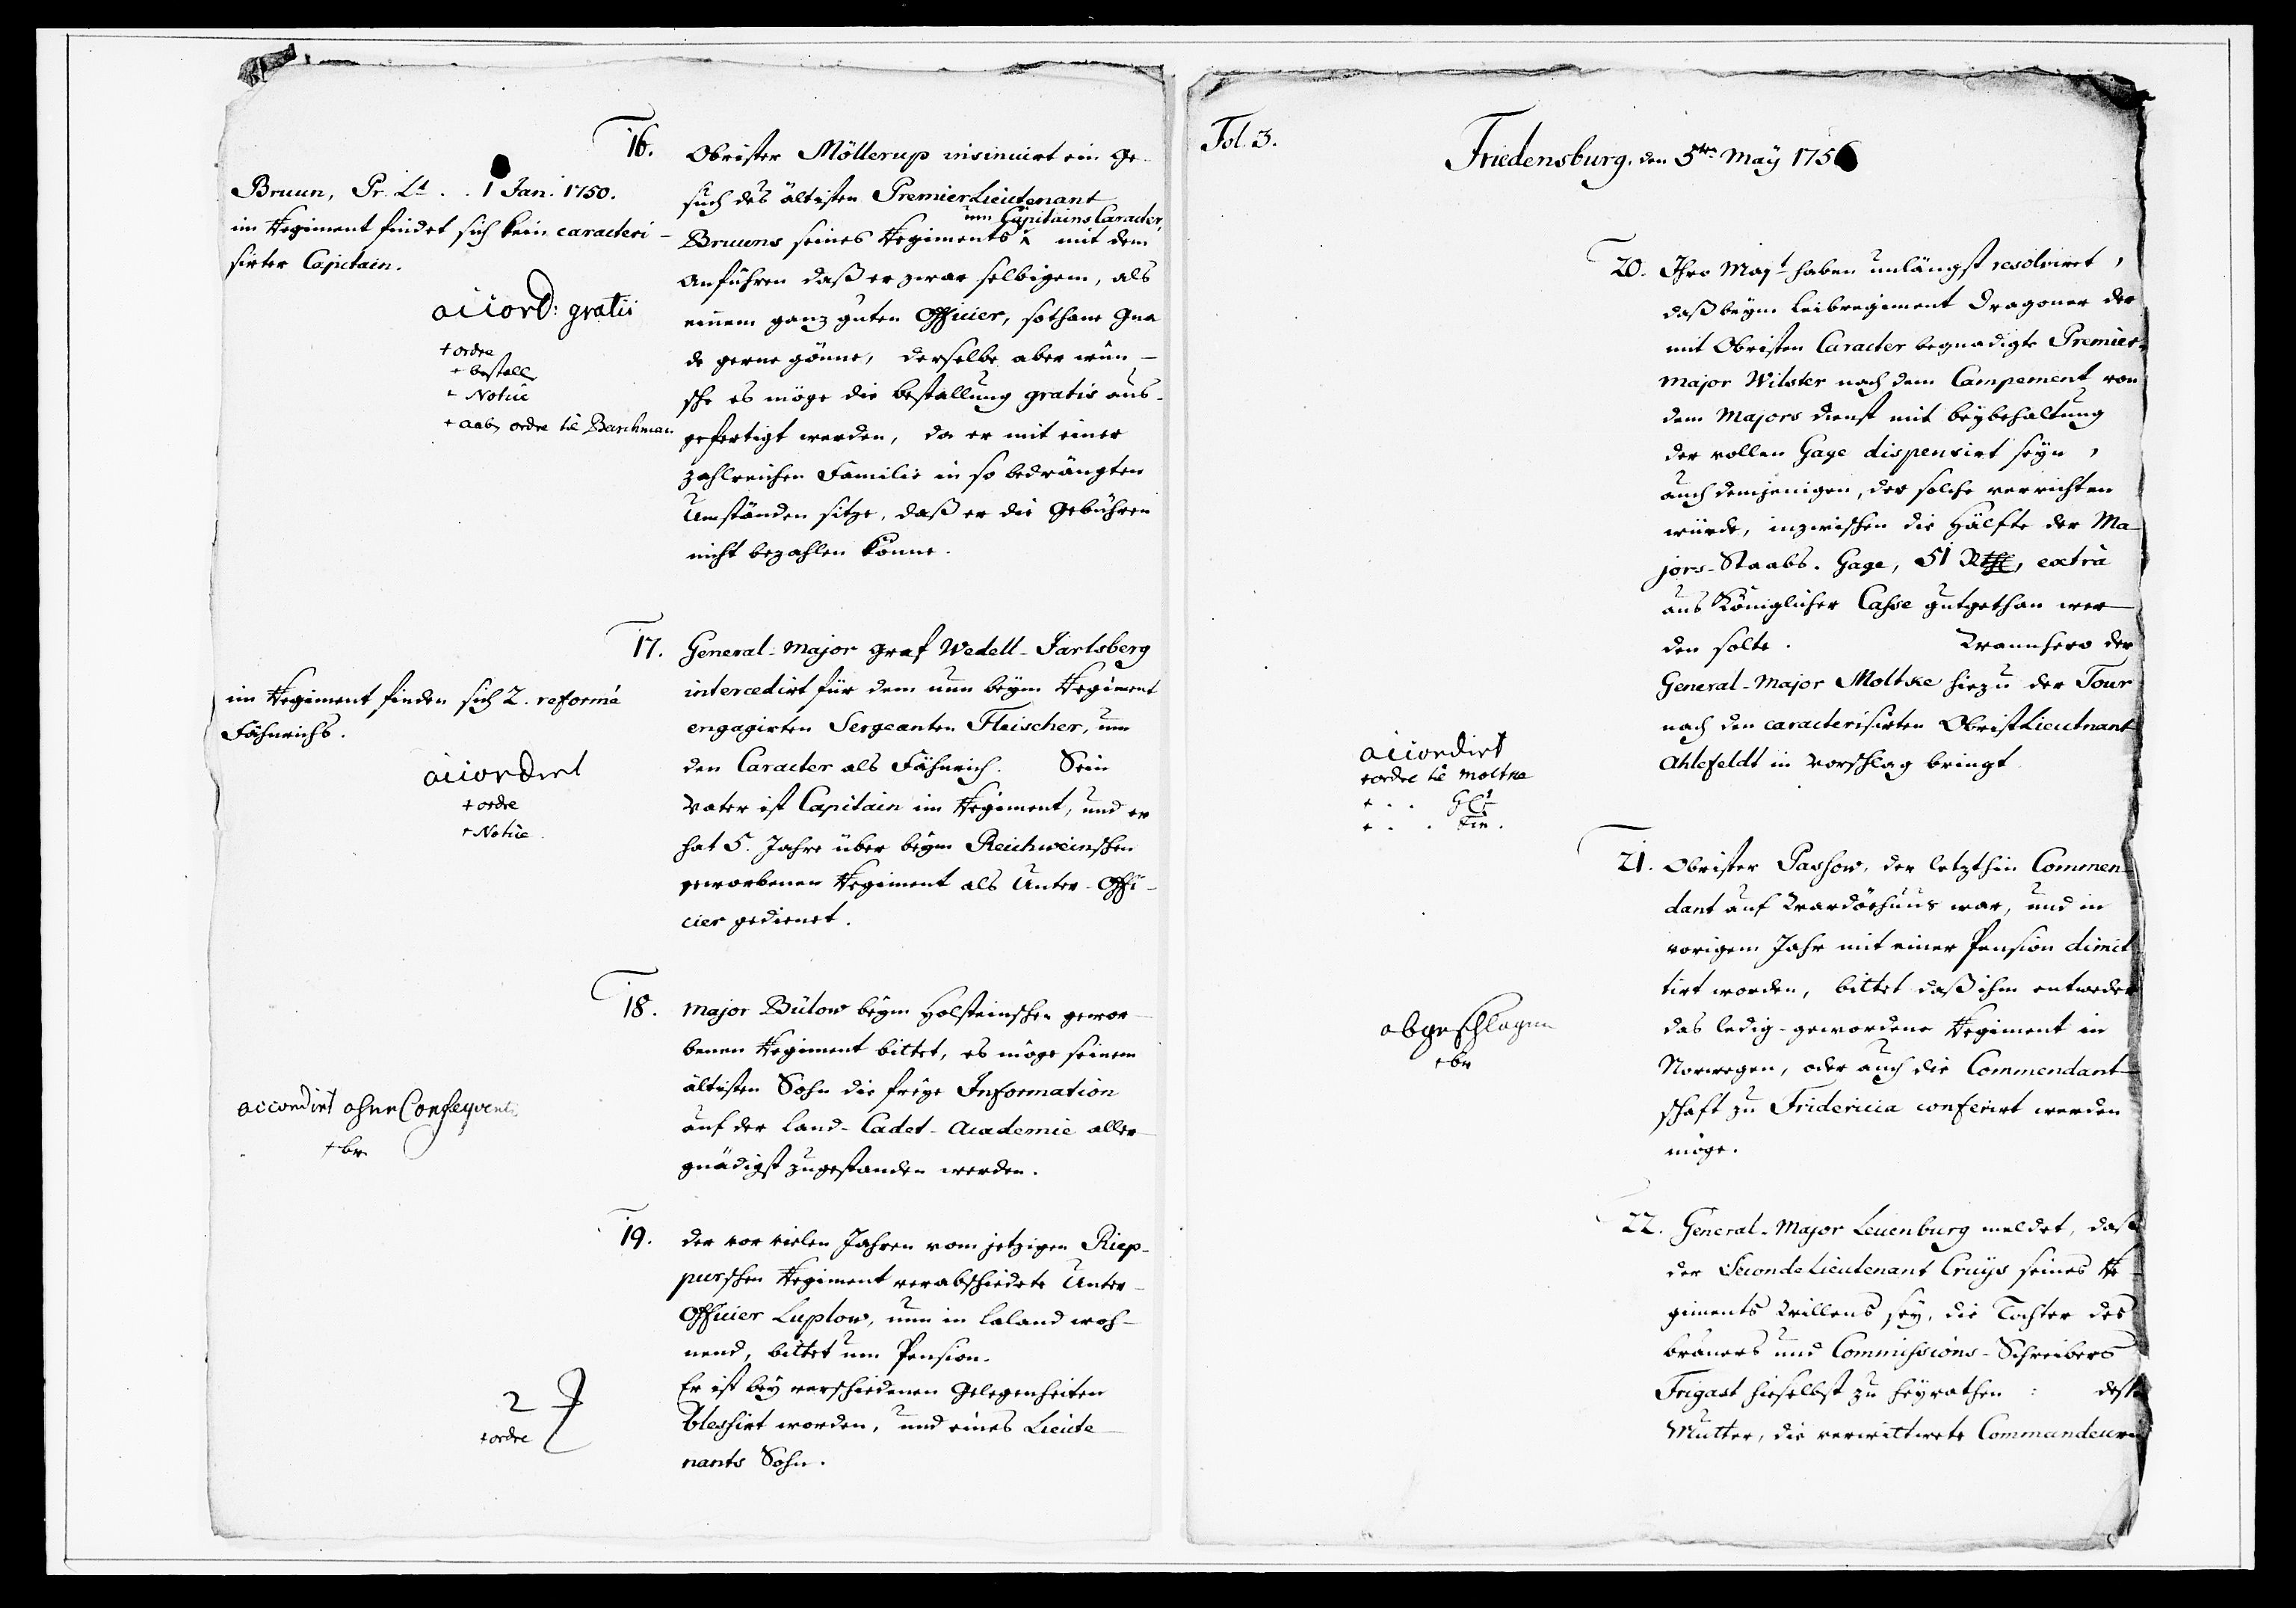 16.
Obrister Möllerup insinuirt ein Ge-
such des ältesten PremierLieutenant
um Capitains Caracter,
Bruuns seines Regiments mit dem
Anführen daß er zwar selbigem, als
einem ganz guten Officier, sothane Gna
de gerne gönne, derselbe aber wün-
sche es möge die bestallung gratis aus-
gefertigt werden, da er mit einer
zahlreichen Familie in so bedrängten
Umständen sitze, daß er die Gebühren
nicht bezahlen könne.
Bruun, Pr. Lt . . 1 Jan. 1750.
im Regiment findet sich kein caracteri-
sirter Capitain.
accord: gratis
+ ordre
+ bestall
+ Notice
+ aab ordre til Barchman
17.
General-Major Graf Wedell-Jarlsberg
intercedirt für dem nun beym Regiment
engagirten Sergeanten Fleischer, um
den Caracter als Fähnrich. Sein
Vater ist Capitain im Regiment, und er
hat 5. Jahre über beym Reichweinschen
geworbenen Regiment als Unter-Offi-
cier gedienet.
im Regiment finden sich 2. reformé
Fähnrichs.
accordirt
+ ordre
+ Notice
18.
Major Bülow beym Holsteinschen gewor-
benen Regiment bittet, es möge seinem
ältesten Sohn die freye Information
auf der Land-Cadet-Academie aller-
gnädigst zugestanden werden.
accordirt ohne Consequents
+ br
19.
der vor vielen Jahren vom jetzigen Riep-
purschen Regiment verabschiedete Unter-
Officier Luplow, nun in Laland woh-
nend, bittet um Pension.
Er ist bey verschiedenen Gelegenheiten
blessirt worden, und eines Lieute-
nants Sohn.
2
+ ordre
Fol. 3.
Friedensburg, den 5ten May 1756
20. Ihro Mayt haben unlängst resolviret,
daß beym Leibregiment Dragoner der
mit Obristen Caracter begnadigte Premier-
Major Wilster nach dem Campement von
dem Majors dienst mit beybehaltung
der vollen Gage dispensirt seyn,
auch demjenigen, der solche verrichten
würde, inzwischen die Hälfte der Ma-
jors-Staabs-Gage, 51 Rthl, extra
aus Königlicher Casse gutgethan wer-
den solte. Wannhero der
General-Major Moltke hiezu der Tour
nach den caracterisirten ObristLieutnant
Ahlefeldt in vorschlag bringt
accordirt
+ ordre til Moltke
+ . . Glt
+ . . . Fin.
21. Obrister Passow, der letzthin Commen-
dant auf Wardöehuus war, und in
vorigem Jahr mit einer Pension dimit
tirt worden, bittet daß ihm entweder
das ledig-gewordene Regiment in
Norwegen, oder auch die Commendant-
schaft zu Fridericia conferirt werden
möge.
abgeschlagen
+ br
22. General-Major Leuenburg meldet, daß
der SecondeLieutenant Cruys seines Re-
giments Willens sey, die Tochter des
bräuers und Commissions-Schreibers
Frigast hieselbst zu heyrathen: dess
Mutter, die verwittwete Commandeurin